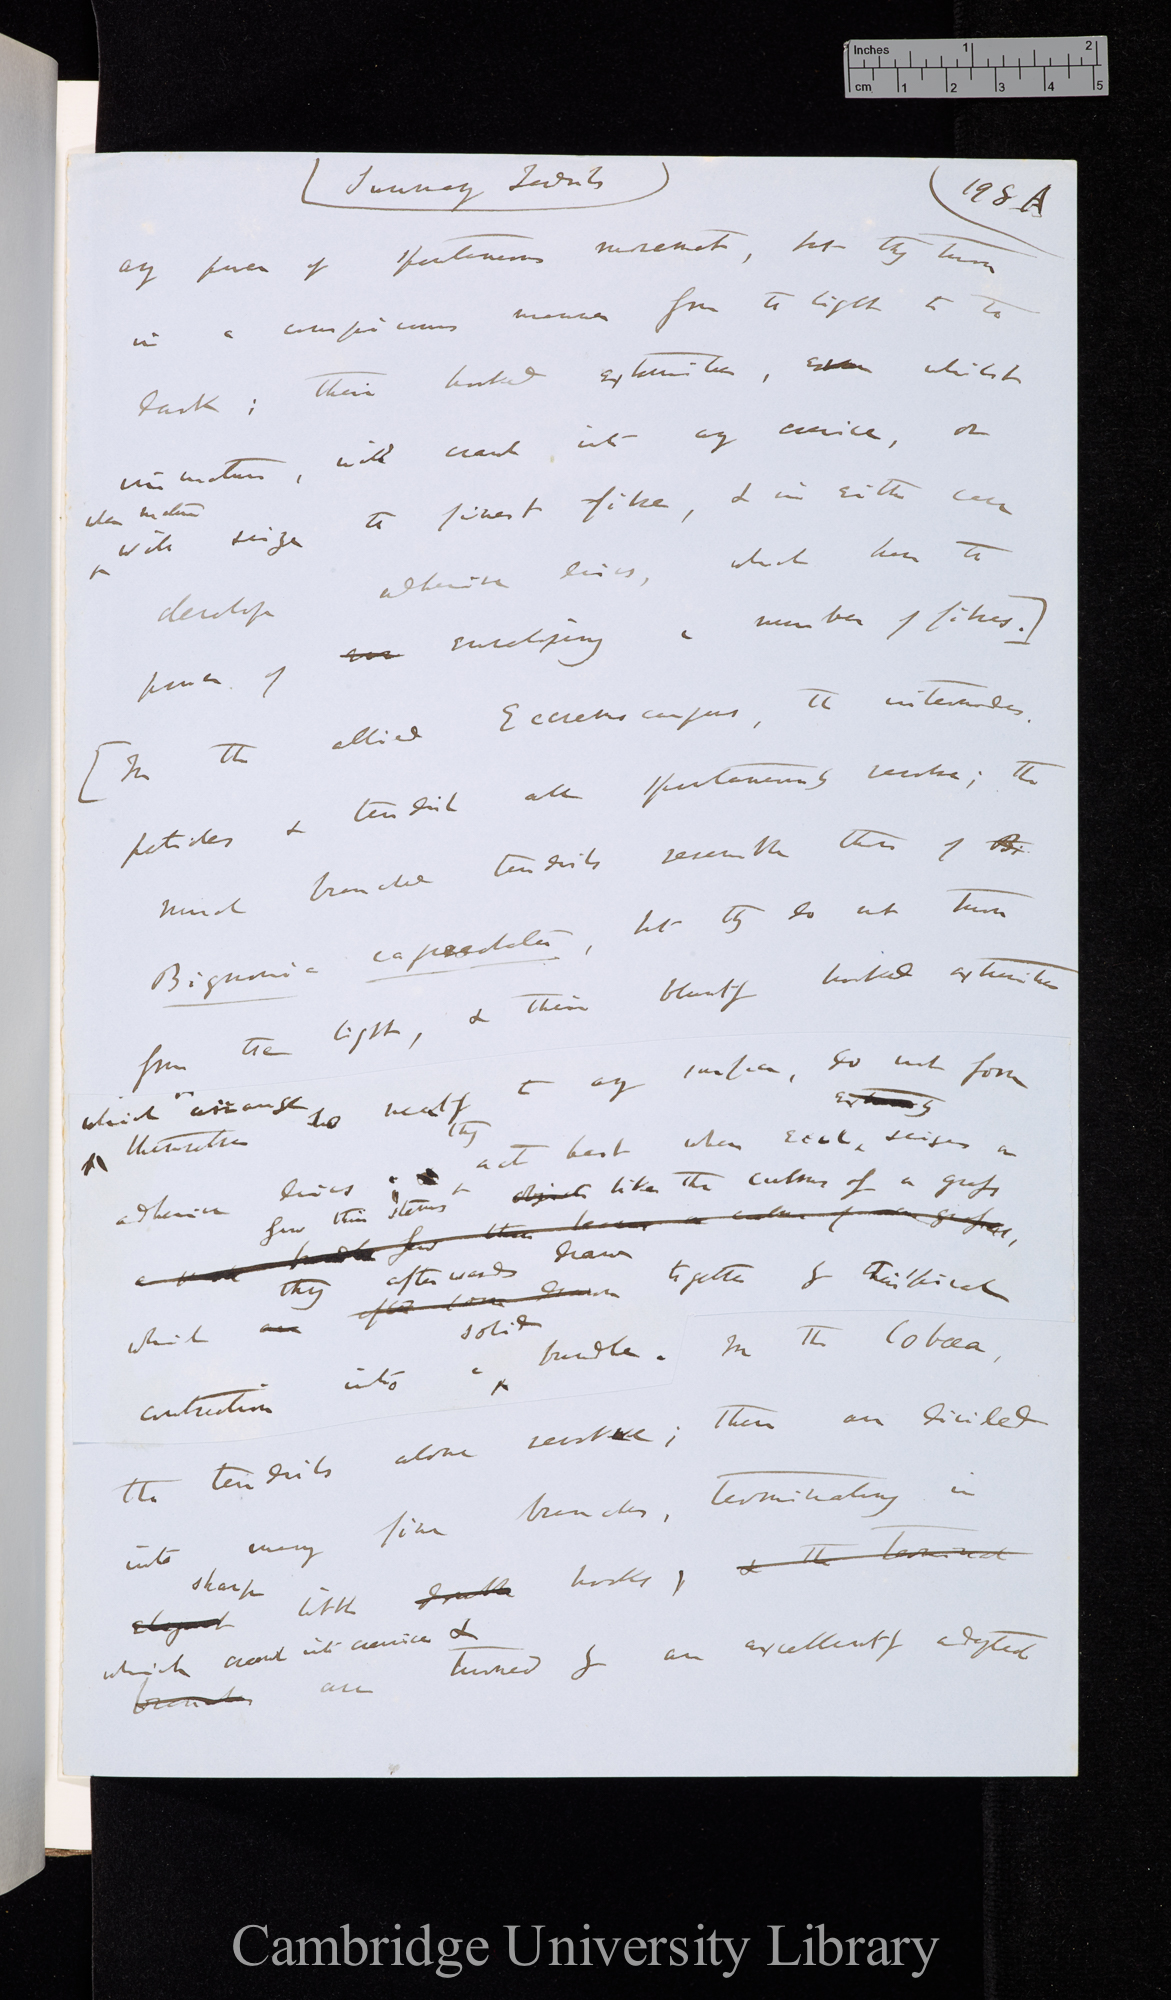 Inches 1 2
cm 1 2 3 4 5
(Summary Tendrils) (198A
any power of spontaneous movement, but they turn
in a conspicuous manner from the light to the
dark; their hooked extremities, even whilst
immature, will crawl into any crevice, or
when mature
will seize the finest fibre, & in either case
develope adhesive discs, which have the
power of enveloping a number of fibres.]
[In the allied Eccremocarpus, the internodes,
petioles & tendrils all spontaneously revolve; the
much branched tendrils resemble those of Bi
Bignonia capreolata, but they do not turn
from the light, & their bluntly hooked extremities
which arrange
themselves so neatly to any surface, do not form
extremity
adhesive discs; they act best when each seizes a
few thin stems objects like the culms of a grass
a few thin leaves or culms of grasses,
which they afterwards drawn together by their spiral
are after some drawn
solid
contraction into a bundle. In the Cobæa,
the tendrils alone revolve; these are divided
into many fine branches, terminating in
sharp
elegant little double hooks, & the terminal
which crawl into crevices &
branches are turned by an excellently adapted
Cambridge University Library